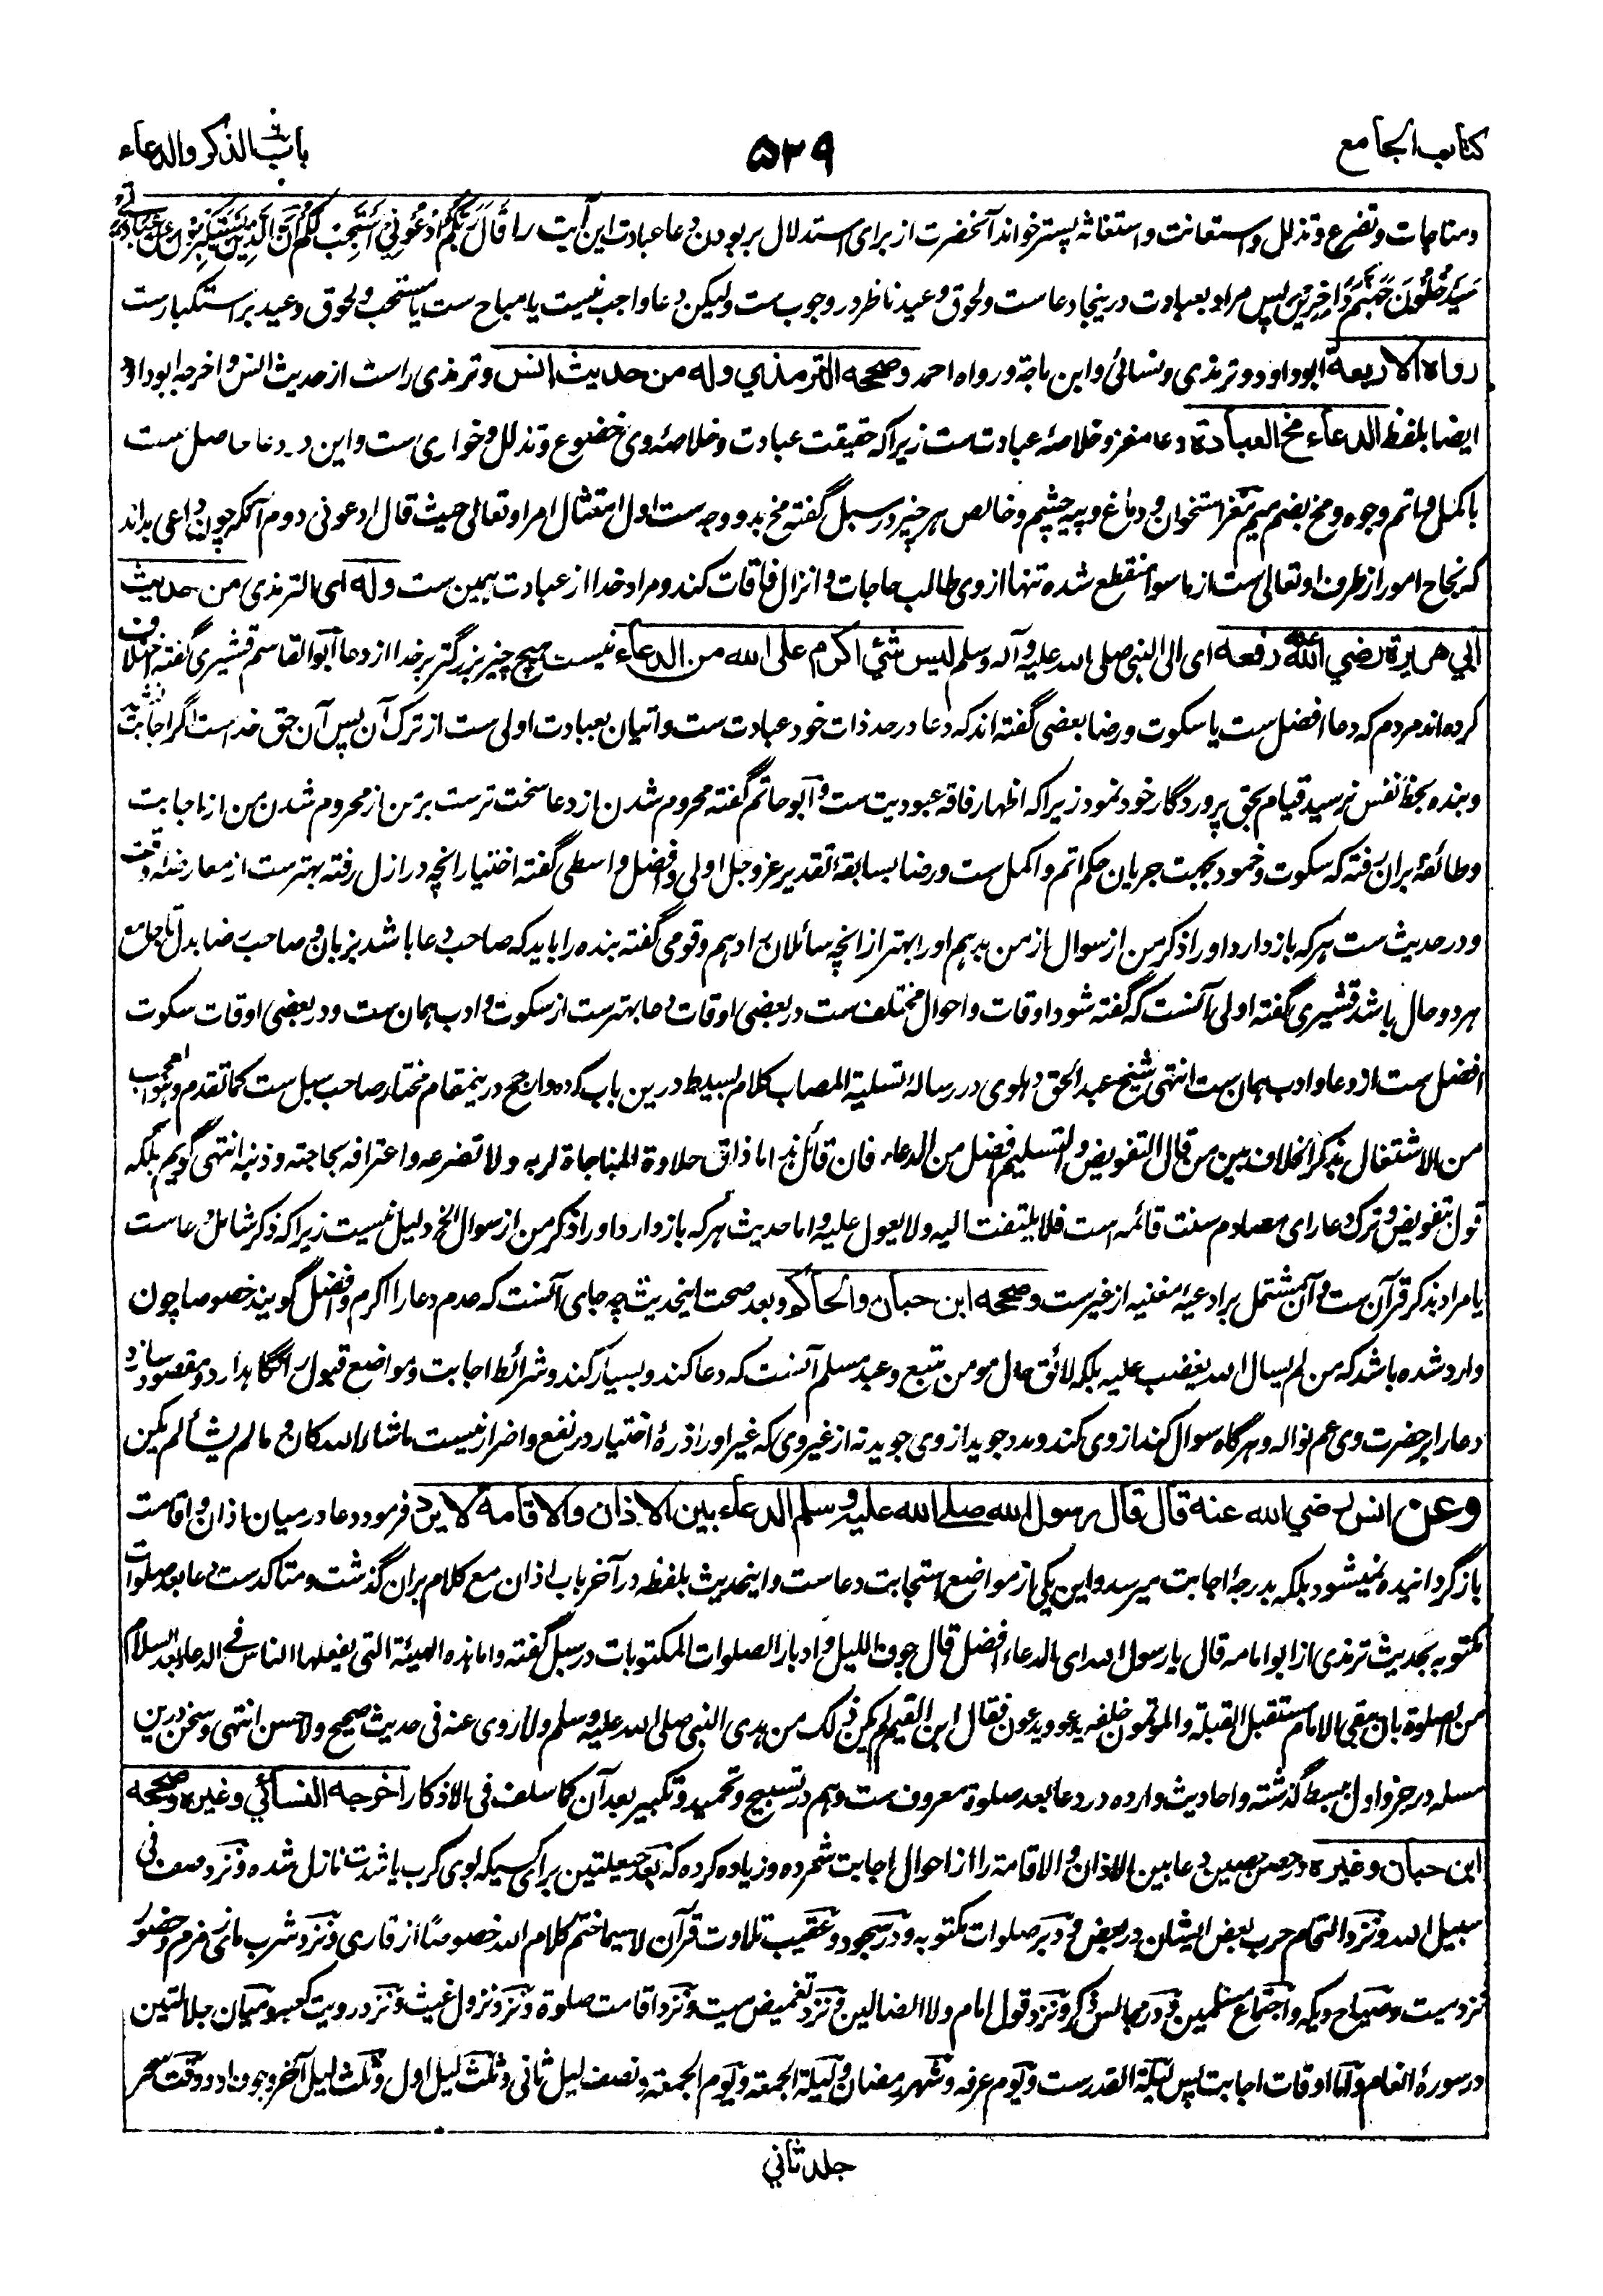 کتاب الجامع
۵۳۹
باب الذکر والدعاء
ومناجات وتضرع وتذلل واستعانت واستغاثه پستر خواند آنحضرت از برای استدلال بر بودن دعا عبادت این آیت را قَالَ رَبُّكُمُ ادْعُوْنِيْ اَسْتَجِبْ لَكُمْ اِنَّ الَّذِيْنَ يَسْتَكْبِرُوْنَ عَنْ عِبَادَتِيْ
سَيَدْخُلُوْنَ جَهَنَّمَ دَاخِرِيْنَ پس مراد بعبادت درینجا دعاست ولحوق وعید ناظر در وجوب ست ولیکن دعا واجب نیست یا مباح ست یا مستحب ولحوق وعید بر استکبارست
رواه الاربعة ابوداود وترمذی ونسائی وابن ماجة ورواه احمد وصححه الترمذي وله من حديث انس وترمذی راست از حدیث انس واخرجه ابوداؤد
ایضا بلفظ الدعاء مخ العبادة دعا مغز وخلاصۂ عبادت ست زیرا که حقیقت عبادت وخلاصۂ وی خضوع وتذلل وخواری ست واین در دعا حاصل ست
باکمل واتم وجوه ومخ بضم میم مغز استخوان ودماغ وپیه چشم وخالص هر چیز در سبل گفته مخ بدو وجه ست اول امتثال امر او تعالی حیث قال ادعونی دوم آنکه چون داعی بداند
که نجاح امور از طرف او تعالی ست از ماسوا منقطع شده تنها از وی طالب حاجات وانزال فاقات کند ومراد خدا از عبادت همین ست وله ای الترمذی من حديث
ابي هريرة رضي الله عنه رفعه ای الی النبی صلی الله علیه وآله وسلم ليس شئ اكرم على الله من الدعاء نیست هیچ چیز بزرگتر بر خدا از دعا ابو القاسم قشیری گفته اختلاف
کرده اند مردم که دعا افضل ست یا سکوت ورضا بعضی گفته اند که دعا در حد ذات خود عبادت ست واتیان بعبادت اولی ست از ترک آن پس آن حق خداست اگر اجابت نشد
وبنده بحظ نفس نرسید قیام بحق پروردگار خود نمود زیرا که اظهار فاقه عبودیت ست وابوحاتم گفته محروم شدن از دعا سخت ترست بر من از محروم شدن من از اجابت
وطائفۂ بران رفته که سکوت وخمود بجهت جریان حکم اتم واکمل ست ورضا بسابقۂ تقدیر عز وجل اولی وافضل واسطی گفته اختیار انچه در ازل رفته بهترست از معارضۂ وقت
ودر حدیث ست هر که باز دارد او را ذکر من از سوال از من بدهم او را بهتر از انچه سائلان را دهم وقومی گفته بنده را باید که صاحب دعا باشد بزبان وصاحب رضا بدل تا جامع
هر دو حال باشد قشیری گفته اولی آنست که گفته شود اوقات واحوال مختلف ست در بعضی اوقات دعا بهترست از سکوت وادب همان ست ودر بعضی اوقات سکوت
افضل ست از دعا وادب همان ست انتهی شیخ عبدالحق دهلوی در رسالۂ تسلیة المصاب کلام بسیط درین باب کرده وارجح درینمقام مختار صاحب سبل ست کما تقدم وهو اعجب
من الاشتغال بذکر الخلاف بین من قال التفویض والتسلیم افضل من الدعاء فان قائل هذا ما ذاق حلاوة المناجاة لربه ولا تضرعه واعترافه بحاجته وذنبه انتهی گویم بلکه
قول بتفویض وترک دعا رای مصادم سنت قائمه است فلا یلتفت الیه ولا یعول علیه واما حدیث هر که باز دارد او را ذکر من از سوال الخ دلیل نیست زیرا که ذکر شامل دعاست
یا مراد بذکر قرآن ست وآن مشتمل بر ادعیۂ مغنیه از غیرست وصححه ابن حبان والحاکم وبعد صحت اینحدیث چه جای آنست که عدم دعا را اکرم وافضل گویند خصوصا چون
وارد شده باشد که من لم یسال الله یغضب علیه بلکه لائق حال مومن متبع وعبد مسلم آنست که دعا کند وبسیار کند وشرائط اجابت ومواضع قبول را نگاهدارد ومقصود سازد
دعا را بر حضرت وی عم نواله وهرگاه سوال کند از وی کند ومدد جوید از وی جوید نه از غیر وی که غیر او را ذرۂ اختیار در نفع واضرار نیست ما شاء الله کان وما لم یشأ لم یکن
وعن انس رضي الله عنه قال قال رسول الله صلى الله عليه وسلم الدعاء بين الاذان والاقامة لا يرد فرمود دعا در میان اذان واقامت
باز گردانیده نمیشود بلکه بدرجۂ اجابت میرسد واین یکی از مواضع استجابت دعاست واینحدیث بلفظه در آخر باب اذان مع کلام بران گذشت ومتاکدست دعا بعد صلوات
مکتوبه بحدیث ترمذی از ابوامامه قال یا رسول الله ای الدعاء افضل قال جوف اللیل وادبار الصلوات المکتوبات در سبل گفته واما هذه الهیئة التی یفعلها الناس فی الدعاء بعد السلام
من الصلوة بان یبقی الامام مستقبل القبلة والموتمون خلفه یدعو ویدعون فقال ابن القیم لم یکن ذلک من هدی النبی صلی الله علیه وسلم ولا روی عنه فی حدیث صحیح ولا حسن انتهی وسخن درین
مسئله در جزو اول ببسط گذشته واحادیث وارده در دعا بعد صلوة معروف ست وهم در تسبیح وتحمید وتکبیر بعد آن کما سلف فی الاذکار اخرجه النسائي وغيره وصححه
ابن حبان وغيره ودر حصن حصین دعا بین الاذان والاقامة را از احوال اجابت شمرده وزیاده کرده که بعد حیعلتین برای کسیکه بوی کرب یا شدت نازل شده ونزد صف فی
سبیل الله ونزد التحام حرب بعض ایشان در بعض ودبر صلوات مکتوبه ودر سجود وعقیب تلاوت قرآن لاسیما ختم کلام الله خصوصا از قاری ونزد شرب مای زمزم وحضور
نزد میت وصیاح دیکه واجتماع مسلمین ودر مجالس ذکر ونزد قول امام ولا الضالین ونزد تغمیض میت ونزد اقامت صلوة ونزد نزول غیث ونزد رویت کعبه ومیان جلالتین
در سورۂ انعام واما اوقات اجابت پس لیلة القدرست ویوم عرفه وشهر رمضان ولیلة الجمعه ویوم الجمعه ونصف لیل ثانی وثلث لیل اول وثلث لیل آخر وجوف او ووقت سحر
جلد ثاني